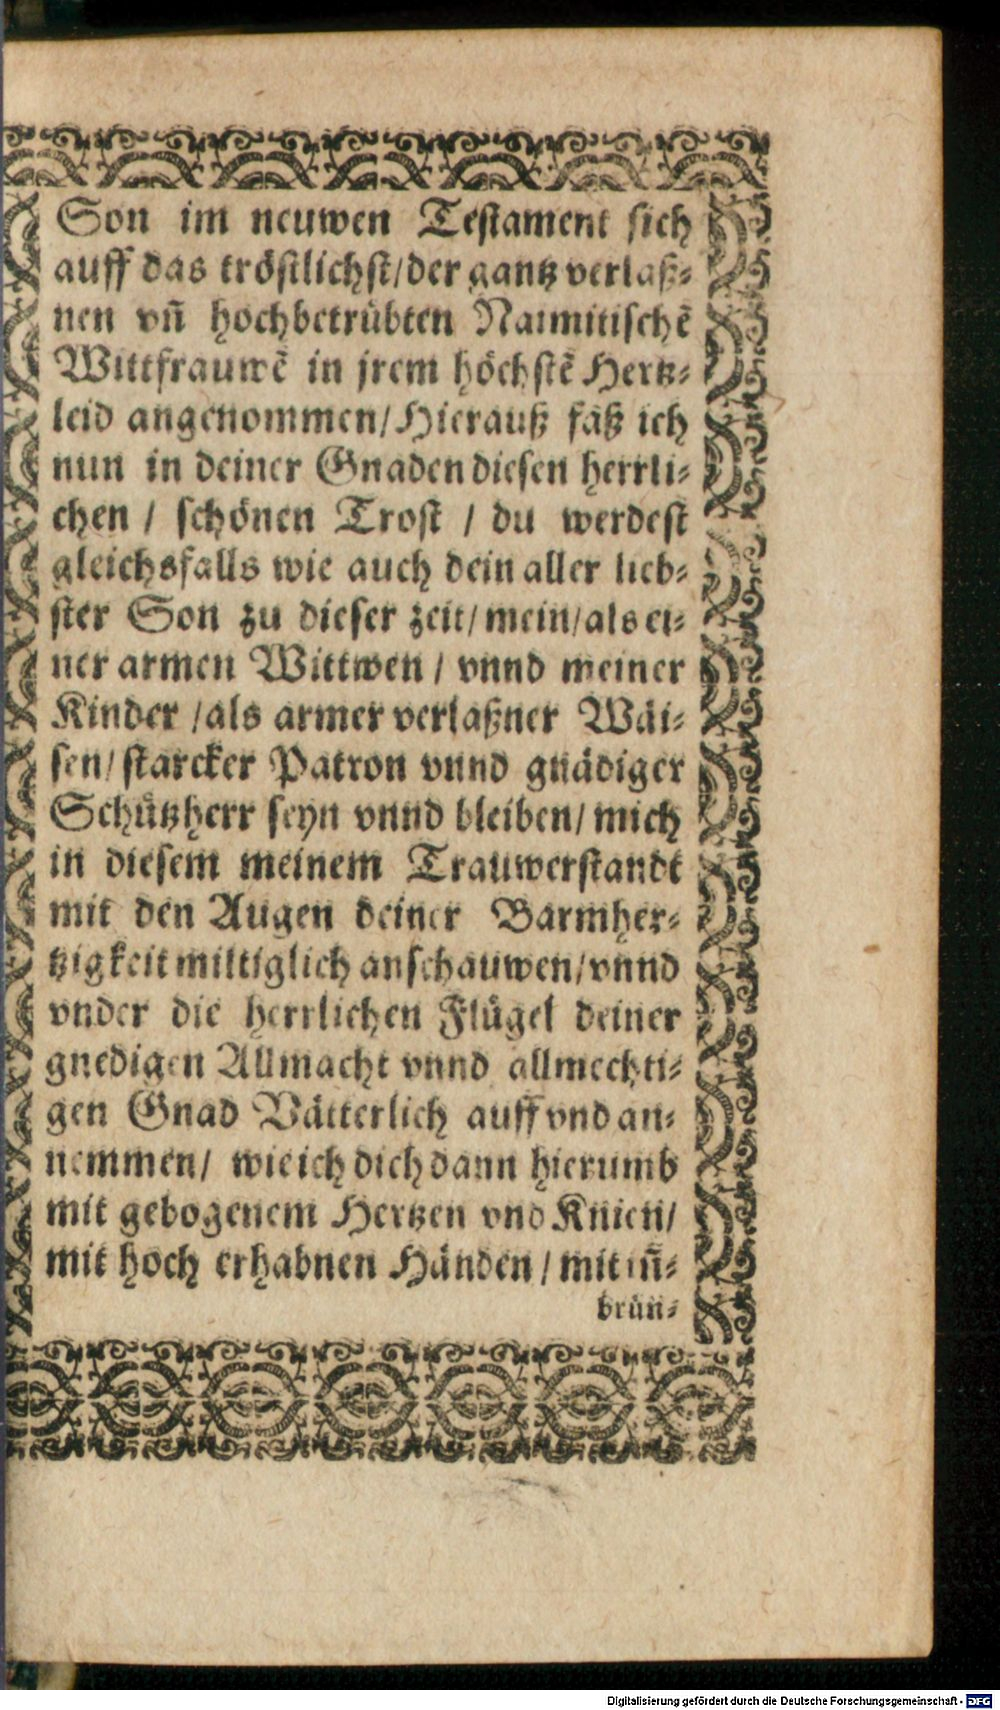 Son im neuwen Testament sich
auff das tröstlichst/der gantz verlaß⸗
nen vñ hochbetrübten Naimitischẽ
Wittfrauwẽ in jrem höchstẽ Hertz⸗
leid angenommen/Hierauß faß ich
nun in deiner Gnaden diesen herrli⸗
chen / schönen Trost / du werdest
gleichsfalls wie auch dein aller lieb⸗
ster Son zu dieser zeit/mein/als ei⸗
ner armen Wittwen / vnnd meiner
Kinder /als armer verlaßner Wäi⸗
sen/starcker Patron vnnd gnädiger
Schützherr seyn vnnd bleiben/mich
in diesem meinem Trauwerstandt
mit den Augen deiner Barmher⸗
tzigkeit miltiglich anschauwen/vnnd
vnder die herrlichen Flügel deiner
gnedigen Allmacht vnnd allmechti⸗
gen Gnad Vätterlich auff vnd an⸗
nemmen/ wie ich dich dann hierumb
mit gebogenem Hertzen vnd Knien/
mit hoch erhabnen Händen / mit in̄⸗
brün⸗
Digitalisierung gefördert durch die Deutsche Forschungsgemeinschaft - DFG